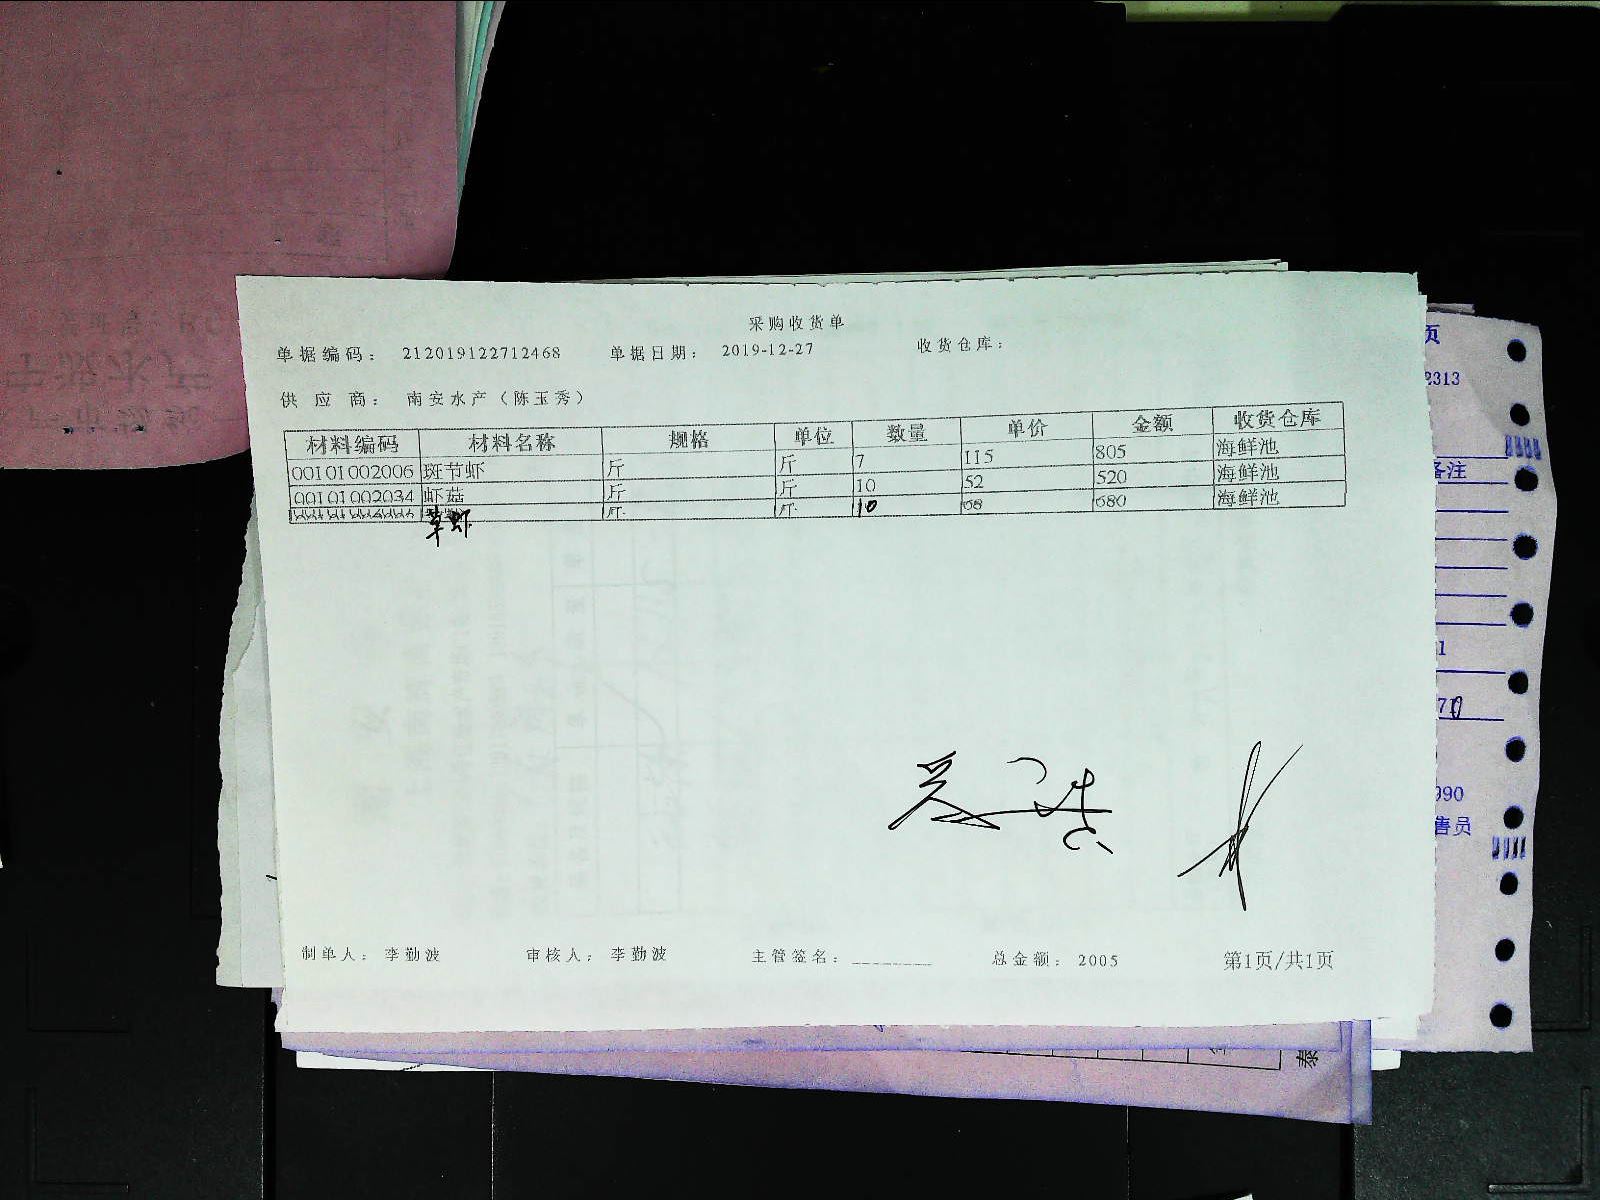 采购收货单
单据编码： 212019122712468 单据日期： 2019-12-27 收货仓库：
供 应 商： 南安水产（陈玉秀）
材料编码 材料名称 规格 单位 数量 单价 金额 收货仓库
00101002006 斑节虾 斤 斤 7 115 805 海鲜池
00101002034 虾菇 斤 斤 10 52 520 海鲜池
草虾 斤 斤 10 68 680 海鲜池
制单人： 李勤波 审核人： 李勤波 主管签名： 总金额： 2005 第1页/共1页
页
2313
备注
1
710
990
售员
泰